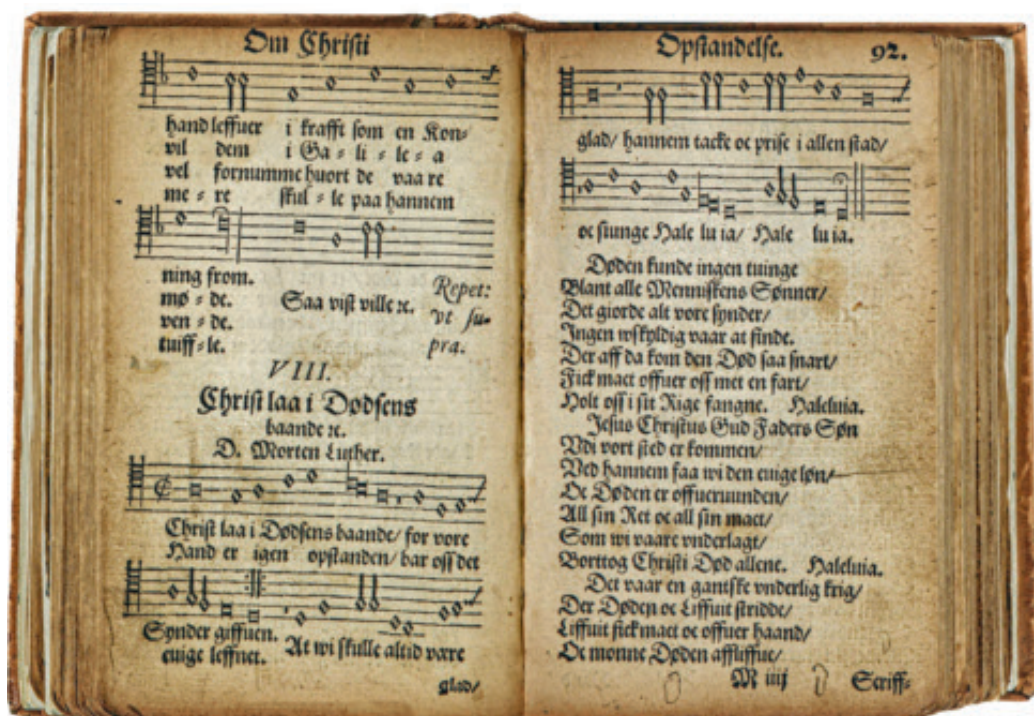 Om Christi
hand leffuer i krafft som en Kon⸗
vil dem i Ga ⸗ li ⸗ le ⸗ a
vel fornumme huort de vaa re
me ⸗ re skul ⸗ le paa hannem
ning from.
mø ⸗ de.
ven ⸗ de.
tuiff ⸗ le.
Saa vist ville ꝛc.
Repet:
vt su-
pra.
VIII.
Christ laa i Dødsens
baande ꝛc.
D. Morten Luther.
Christ laa i Dødsens baande/ for vore
Hand er igen opstanden/ bar oss det
Synder giffuen.
euige leffnet.
At wi skulle altid være
glad/
Opstandelse. 92.
glad/ hannem tacke oc prise i allen stad/
oc siunge Hale lu ia/ Hale lu ia.
Døden kunde ingen tuinge
Blant alle Menniskens Sønner/
Det giorde alt vore synder/
Ingen wskyldig vaar at finde.
Der aff da kom den Død saa snart/
Fick mact offuer oss met en fart/
Holt oss i sit Rige fangne. Haleluia.
Jesus Christus Gud Faders Søn
Vdi vort sted er kommen/
Ved hannem faa wi den euige løn/
Oc Døden er offueruunden/
All sin Ret oc all sin mact/
Som wi vaare vnderlagt/
Borttog Christi Død allene. Haleluia.
Det vaar en gantske vnderlig krig/
Der Døden oc Liffuit stridde/
Liffuit fick mact oc offuer haand/
Oc monne Døden affliffue/
M iiij Scriff⸗